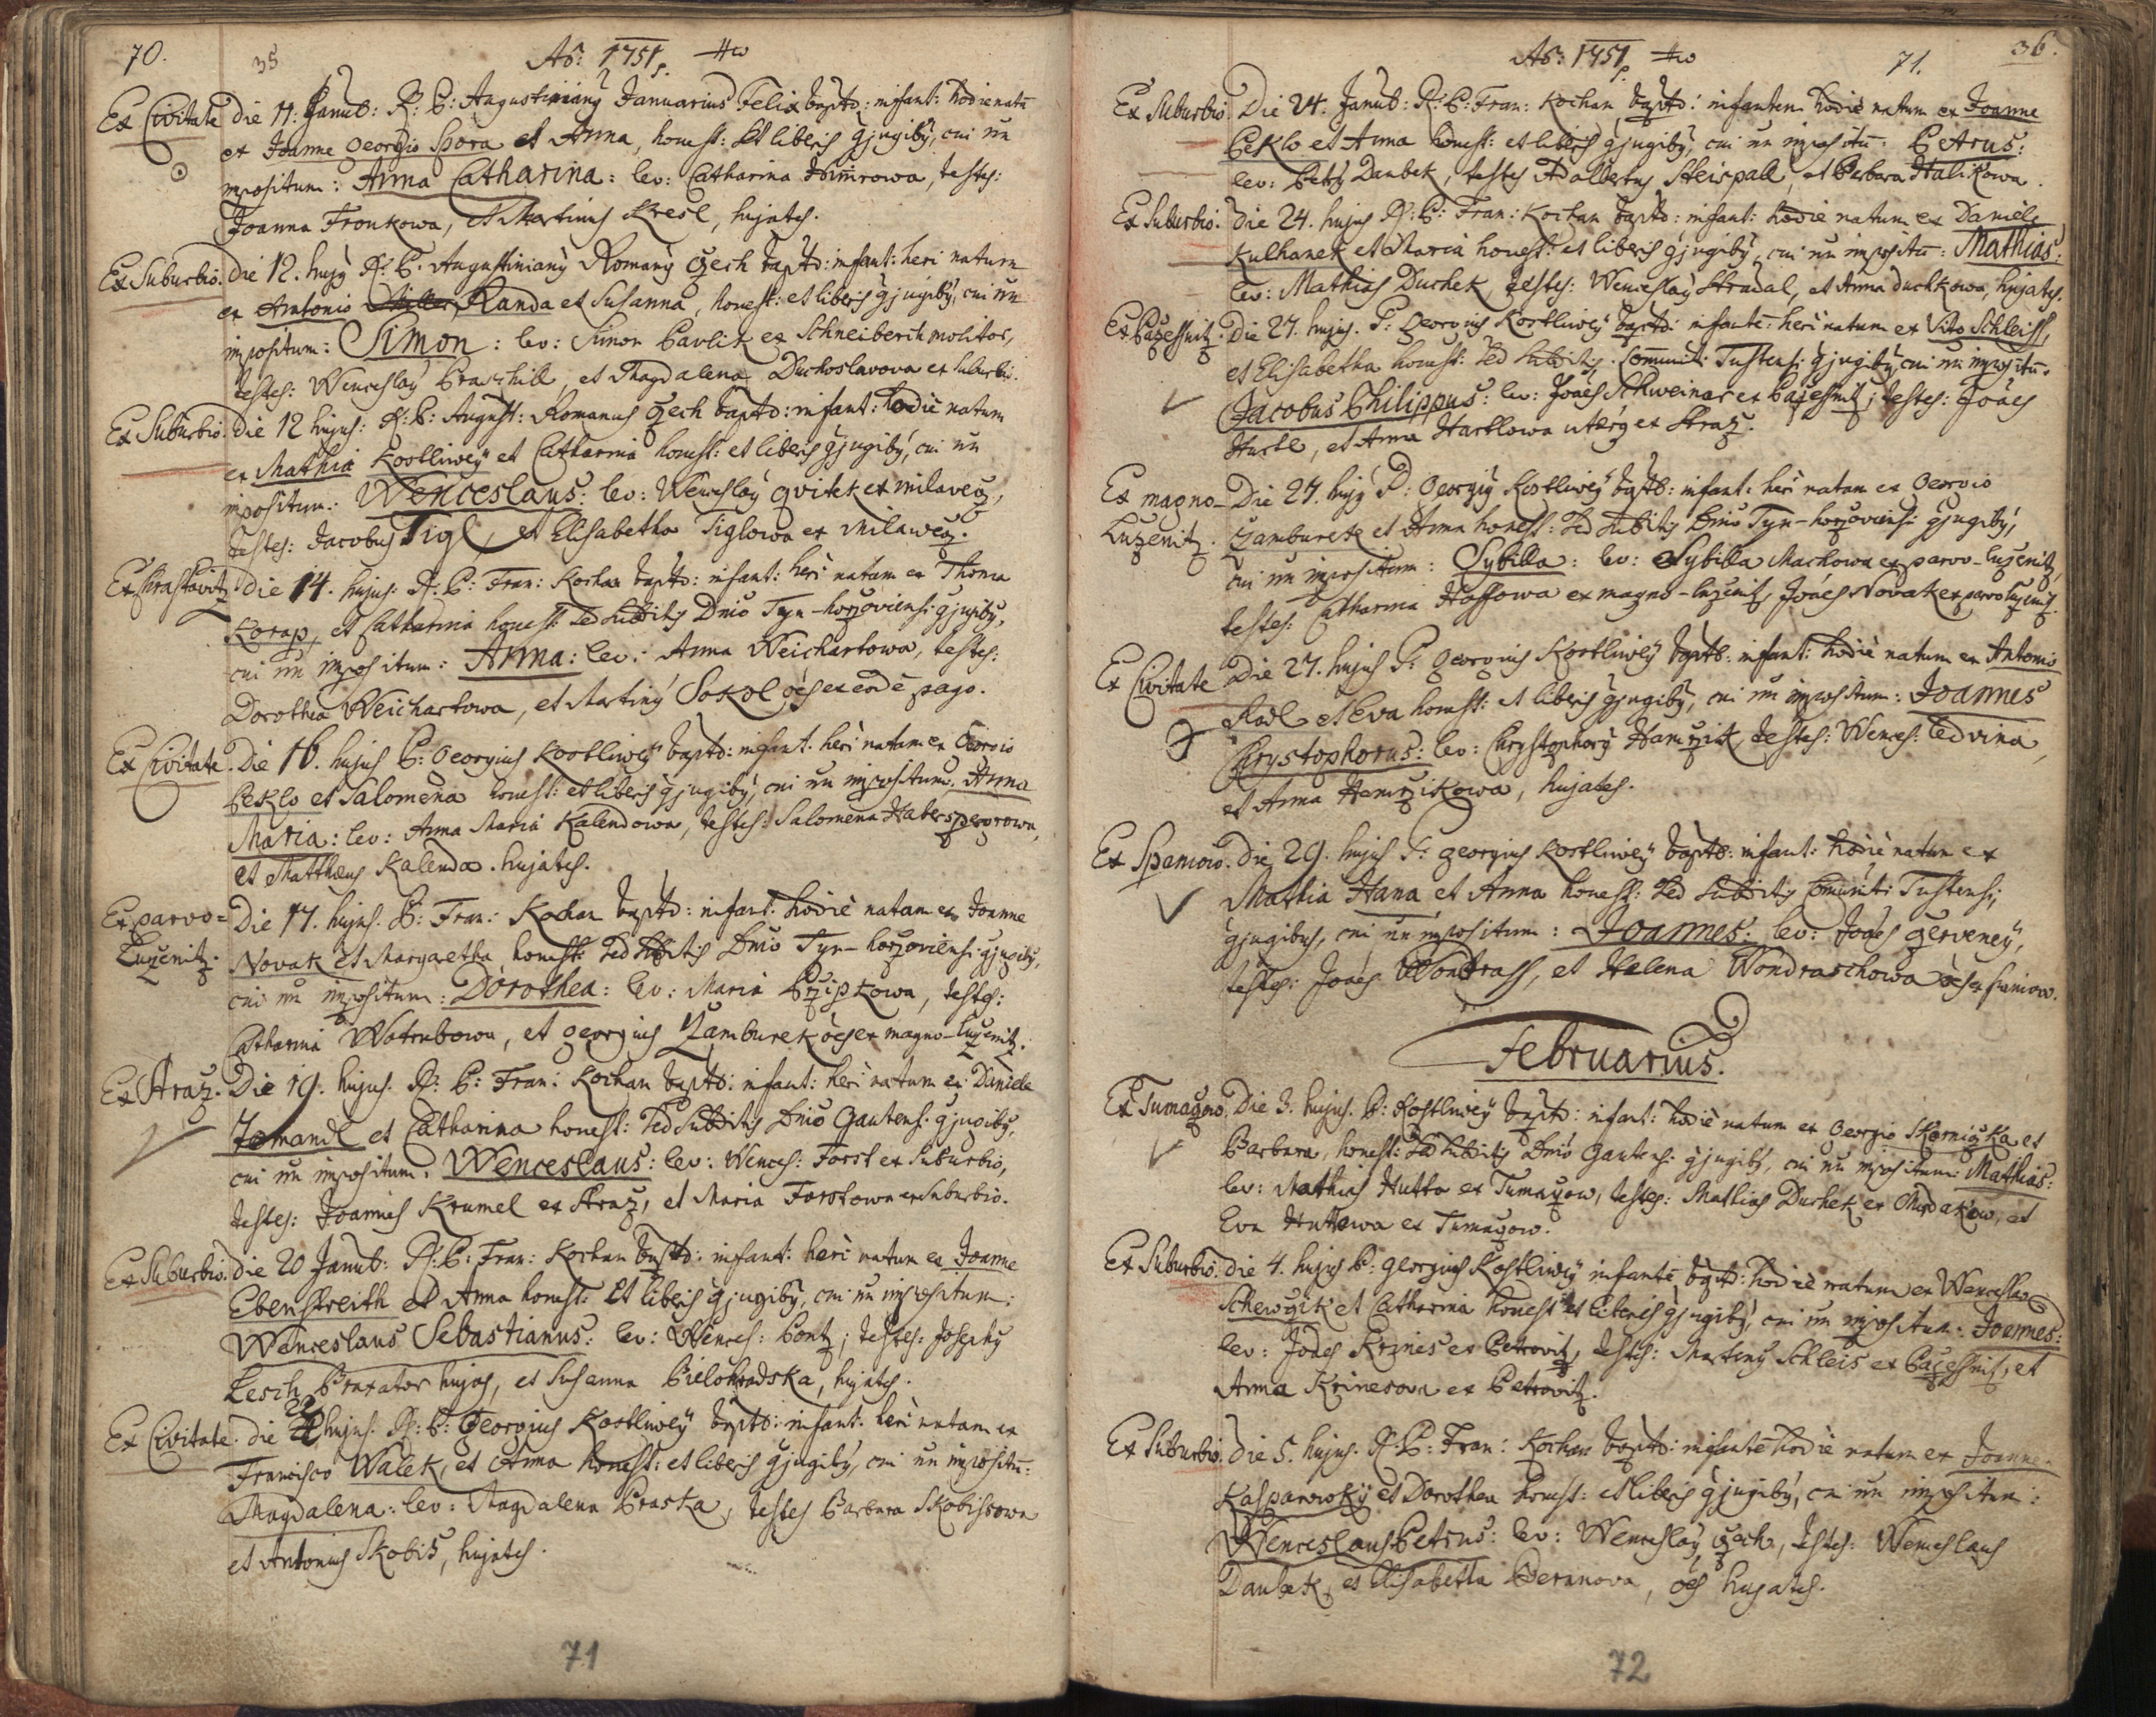 70. 35 Aõ: 1751
Ex Civitate die 11: Janua: R: P: Augustinianus Januarius Felix bapto: infant: hodie natã
ex Joanne Georgio Spora et Anna, honest: et liberis conjugibus, cui nn
impositum: Anna Catharina: lev: Catharina testes:
Joanna Fronkowa, et Martinus Kresl, hujates.
Ex Suburbio. die 12. hujus R: P. Augustinianus Romanus Czech bapto: infant: heri natum
ex Antonio Randa et Susanna, honest: et liberis conjugibus, cui nn
impositum: Simon: lev: Simon Pavlik ex Schneiberch molitor,
testes: Wenceslaus et Magdalena Duchoslavova ex Suburbio.
Ex Suburbio. die 12 hujus: R: P: August: Romanus Czech bapto: infant: hodie natum
ex Mathia Kostliwey et Catharina honest: et liberis conjugibus, cui nn
impositum: Wenceslaus: lev: Wenceslaus Qvitek ex Milavecz,
testes: Jacobus Tigl, et Elisabetha Tiglowa ex Milawecz.
Ex Chrastavitz. die 14. hujus R: P: Fran: Kochan bapto: infant: heri natam ex Thoma
Korap, et Catharina honest: sed subditis Dnio Tyn-horzoviensi conjugibus,
cui nn impositum: Anna: lev: Anna Weichartowa, testes:
Dorothea Weichartowa, et Martinus Sokol oes ex eodē pago.
Ex Civitate. Die 16. hujus P: Georgius Kostliwey bapto: infant: heri natam ex Georgio
Peklo et Salomena honest: et liberis conjugibus, cui nn impositum: Anna
Maria: lev: Anna Maria Kalendowa, testes: Salomena Haberspergrowa,
et Matthaeus Kalenda. hujates.
Ex parvo= Die 17. hujus. P: Fran: Kochan bapto: infant: hodie natam ex Joanne
Luzenitz. Novak et Margaretha, honest: sed subditis Dnio Tyn-horzoviensi conjugibus,
cui nn impositum: Dorothea: lev: Maria Przipkowa, testes:
Catharina Watrubowa, et Georgius Zamburek oes ex magno-Luzenitz.
Ex Straz. Die 19. hujus. R: P: Fran: Kochan bapto: infant: heri natum ex Daniele
Zemandl et Catharina honest: sed subditis Dnio Gautensi conjugibus,
cui nn impositum: Wenceslaus: lev: Wences: Forst ex Suburbio,
testes: Joannes Krumel ex Straz, et Maria Forstowa ex Suburbio.
Ex Suburbio. die 20 Janua: R: P: Fran: Kochan bapto: infant: heri natum ex Joanne
Ebenstreith et Anna honest: et liberis conjugibus, cui nn impositum:
Wenceslaus Sebastianus: lev: Wences: Pontz; testes: Josephus
Lesch Braxator hujas, et Susanna Bielohradska, hujates.
Ex Civitate. die 22 hujus. R: P: Georgius Kostliwey bapto: infant: heri natam ex
Francisco Walek, et Anna honest: et liberis conjugibus, cui nn impositũ:
Magdalena: lev: Magdalena Praska, testes Barbara Skobisowa
et Antonius Skobis, hujates.
71
Aõ: 1751 71. 36.
Ex Suburbio. Die 24. Janua: R: P: Fran: Kochan bapto: infantem hodie natum ex Joanne
Peklo et Anna honest: et liberis conjugibus, cui nn impositũ: Petrus:
lev: Petrus Daubek, testes Adalbertus Steispall, et Barbara Halikowa.
Ex Suburbio. die 24. hujus R: P: Fran: Kochan bapto: infant: hodie natum ex Daniele
Kulhanek et Maria honest: et liberis conjugibus, cui nn impositũ: Mathias:
lev: Mathias Duchek, testes: Wenceslaus Stradal, et Anna Duchkowa, hujates.
Ex Pazesnitz. Die 27. hujus. P: Georgius Kostliwey bapto: infantē: heri natum ex Vito Schleiss,
et Elisabetha honest: sed subditis Communit: Tustensi conjugibus, cui nn impositũ:
Jacobus Philippus: lev: Joães Schweinar ex Pazesnitz, testes: Joães
Hartl, et Anna Hartlowa utérq ex Straz.
Ex magno- Die 27. hujus P: Georgius Kostliwey bapto: infant: heri natam ex Georgio
Luzenitz. Zamburek et Anna honest: sed subditis Dnio Tyn-horzoviensi conjugibus,
cui nn impositum: Sybilla: lev: Sybilla Markowa ex parvo-Luzenitz,
testes: Catharina Hassowa ex magno-Luzenitz, Joães Novak ex parvo Luzenitz.
Ex Civitate Die 27. hujus P: Georgius Kostliwey bapto: infant: hodie natum ex Antonio
Radl et Eva honest: et liberis conjugibus, cui nn impositum: Joannes
Chrystophorus: lev: Chrystophorus Hamrzik, testes: Wences: Ledvina,
et Anna Hamrzikowa, hujates.
Ex Spaniow. Die 29. hujus P: Georgius Kostliwey bapto: infant: hodie natum ex
Mathia Hana et Anna honest: sed subditis Communit: Tustensi,
conjugibus, cui nn impositum: Joannes: lev: Joães Czerveney,
testes: Joães Wondrass, et Helena Wondraschowa oes ex Spaniow.
Februarius.
Ex Tumaczow. Die 3. hujus. P: Kostliwey bapto: infant: hodie natum ex Georgio Skorniczka et
Barbara, honest: sed subditis Dnio Gautensi conjugibus, cui nn impositum: Mathias:
lev: Mathias Hutta ex Tumaczow, testes: Mathias Duchek ex Mrdakow, et
Eva Huttowa ex Tumaczow.
Ex Suburbio. die 4. hujus P: Georgius Kostliwey infantē bapto: hodie natum ex Wenceslao
Schewczik et Catharina honest: et liberis conjugibus, cui nn impositum: Joannes:
lev: Joães Krzines ex Petrovitz, testes: Martinus Schleis ex Pazesnitz, et
Anna Krinesova ex Petrovitz.
Ex Suburbio. die 5. hujus. R: P: Fran: Kochan bapto: infantē hodie natum ex Joanne
Kasparowsky et Dorothea honest: et liberis conjugibus, cui nn impositum:
Wenceslaus Petrus: lev: Wenceslaus Czech, testes: Wenceslaus
Daubek, et Elisabetha Beranova, oes hujates.
72